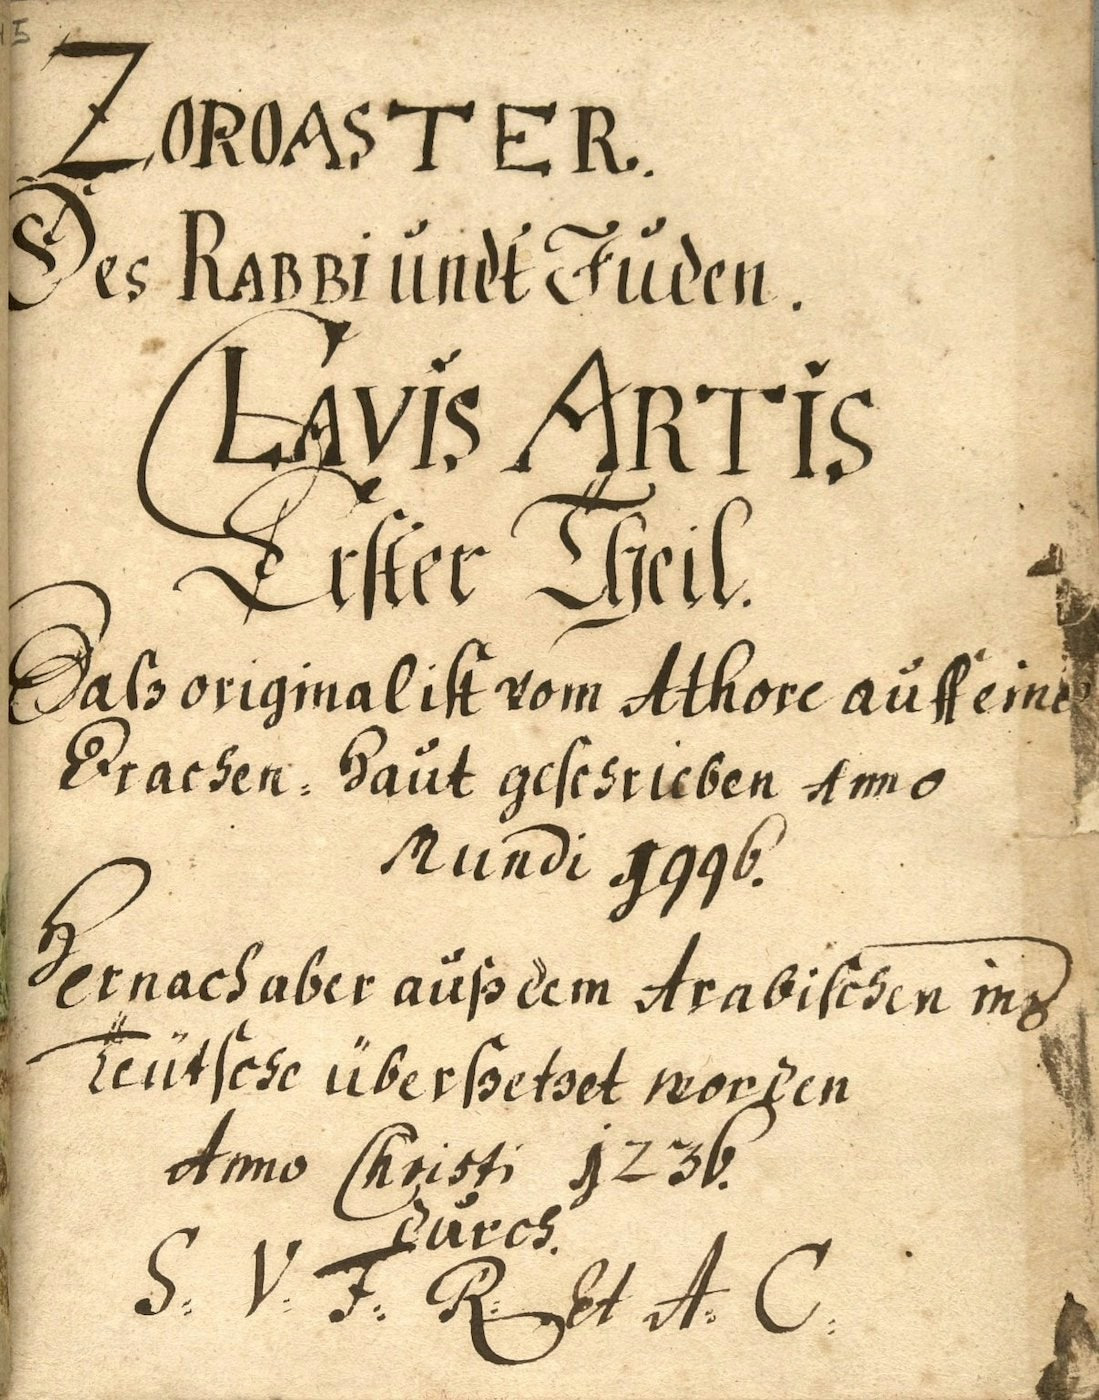 15
ZOROASTER.
Des RABBI undt Juden.
CLAVIS ARTIS
Erster Theil.
Daß original ist vom Athore auff eine
Drachen= Haut geschrieben Anno
Mundi 1996.
Hernach aber auß dem Arabischen ins
Teütsche überßetzet worden
Anno Christi 1236.
durch.
S: V: F: R: Et A: C: